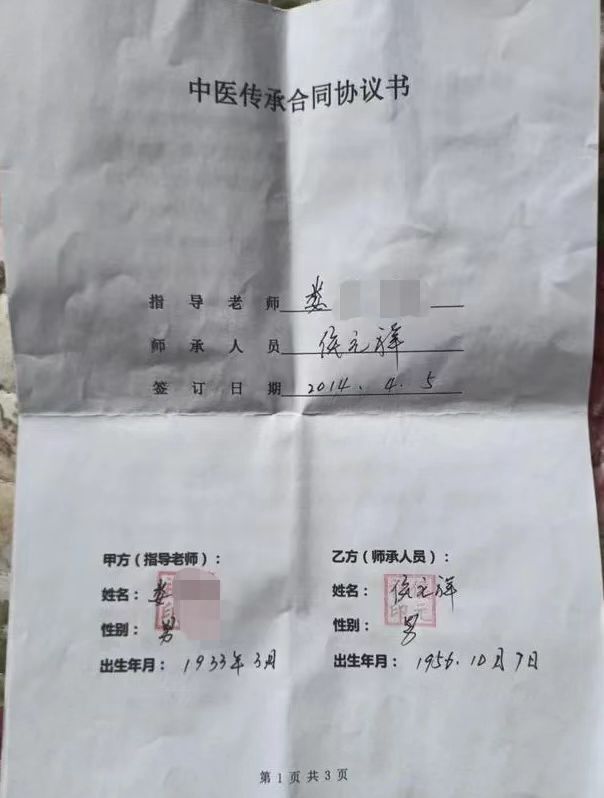 中医传承合同协议书
指导老师 娄
师承人员 侯元祥
签订日期 2014.4.5
甲方（指导老师）：
姓名：娄
性别：男
出生年月：1933年3月
乙方（师承人员）：
姓名：侯元祥
性别：男
出生年月：1956.10月7日
第1页共3页